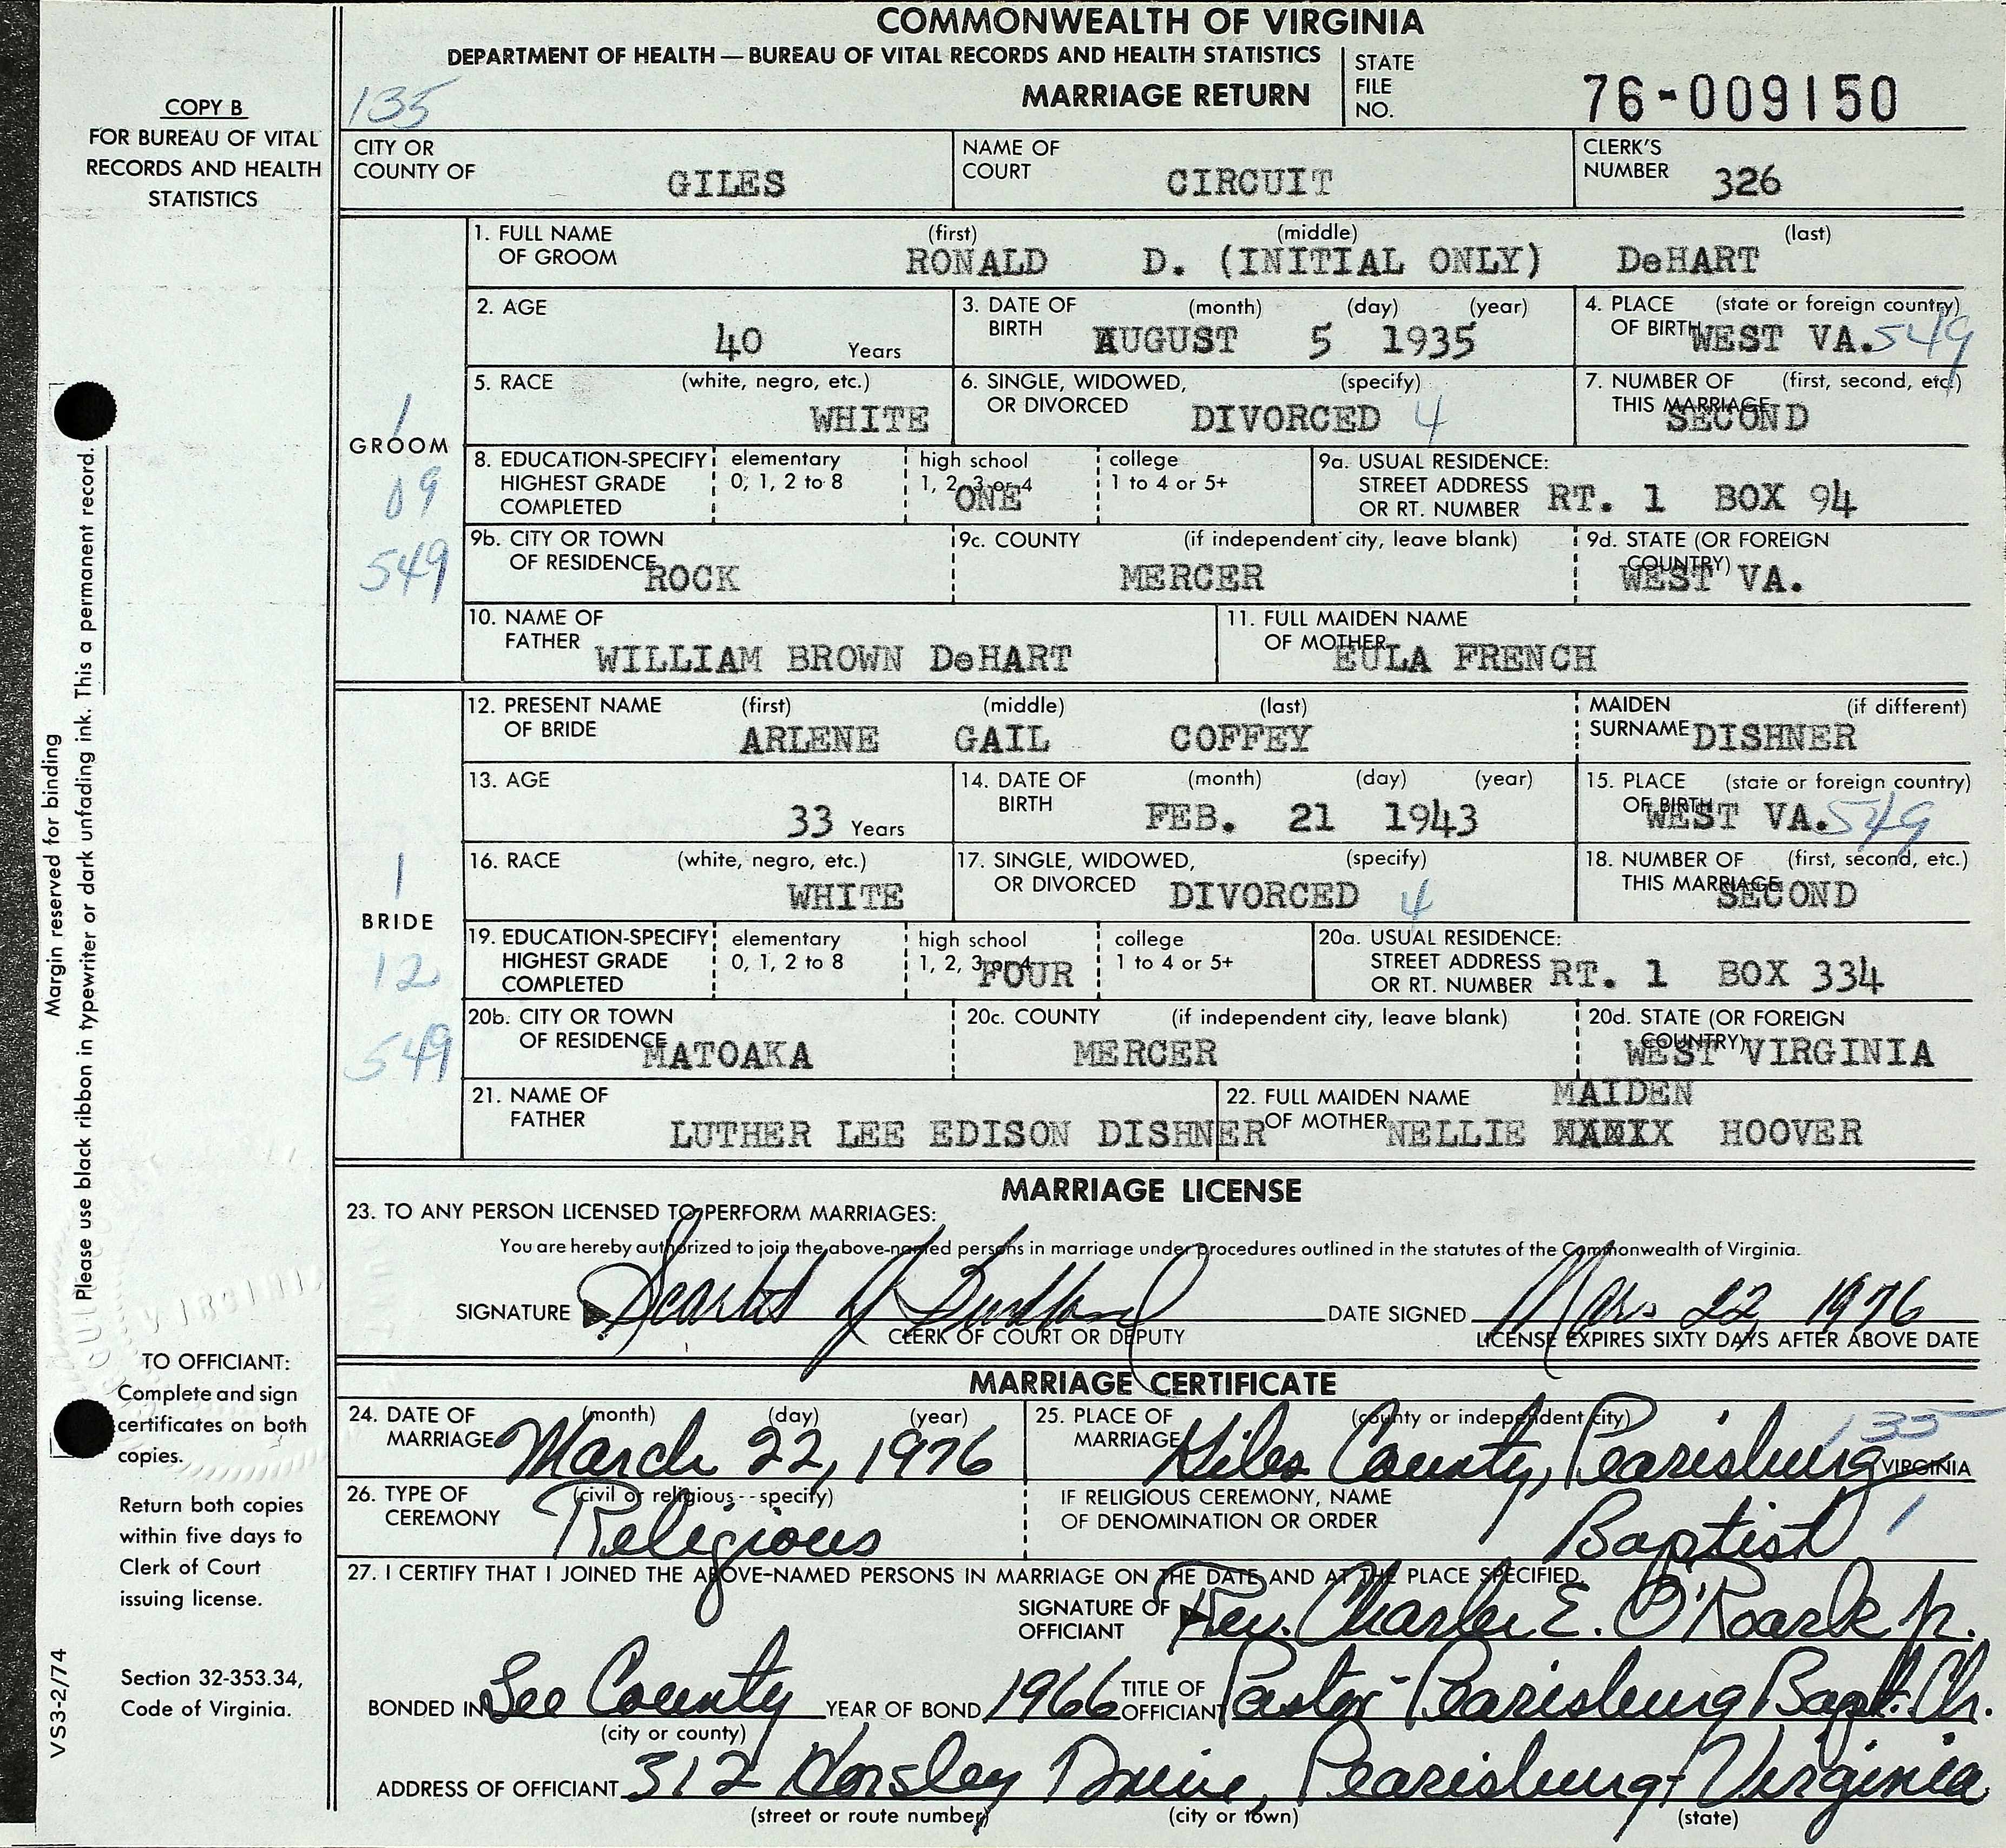 COMMONWEALTH OF VIRGINIA
DEPARTMENT OF HEALTH — BUREAU OF VITAL RECORDS AND HEALTH STATISTICS
MARRIAGE RETURN
STATE FILE NO. 76-009150
135
COPY B
FOR BUREAU OF VITAL
RECORDS AND HEALTH
STATISTICS
CITY OR COUNTY OF GILES
NAME OF COURT CIRCUIT
CLERK'S NUMBER 326
GROOM
1
09
549
1. FULL NAME OF GROOM (first) (middle) (last)
RONALD D. (INITIAL ONLY) DeHART
2. AGE 40 Years
3. DATE OF BIRTH (month) (day) (year) AUGUST 5 1935
4. PLACE OF BIRTH (state or foreign country) WEST VA. 549
5. RACE (white, negro, etc.) WHITE
6. SINGLE, WIDOWED, OR DIVORCED (specify) DIVORCED 4
7. NUMBER OF THIS MARRIAGE (first, second, etc.) SECOND
8. EDUCATION-SPECIFY HIGHEST GRADE COMPLETED
elementary 0, 1, 2 to 8
high school 1, 2, 3 or 4 ONE
college 1 to 4 or 5+
9a. USUAL RESIDENCE: STREET ADDRESS OR RT. NUMBER RT. 1 BOX 94
9b. CITY OR TOWN OF RESIDENCE ROCK
9c. COUNTY (if independent city, leave blank) MERCER
9d. STATE (OR FOREIGN COUNTRY) WEST VA.
10. NAME OF FATHER WILLIAM BROWN DeHART
11. FULL MAIDEN NAME OF MOTHER EULA FRENCH
BRIDE
1
12
549
12. PRESENT NAME OF BRIDE (first) (middle) (last)
ARLENE GAIL COFFEY
MAIDEN SURNAME (if different) DISHNER
13. AGE 33 Years
14. DATE OF BIRTH (month) (day) (year) FEB. 21 1943
15. PLACE OF BIRTH (state or foreign country) WEST VA. 549
16. RACE (white, negro, etc.) WHITE
17. SINGLE, WIDOWED, OR DIVORCED (specify) DIVORCED 4
18. NUMBER OF THIS MARRIAGE (first, second, etc.) SECOND
19. EDUCATION-SPECIFY HIGHEST GRADE COMPLETED
elementary 0, 1, 2 to 8
high school 1, 2, 3 or 4 FOUR
college 1 to 4 or 5+
20a. USUAL RESIDENCE: STREET ADDRESS OR RT. NUMBER RT. 1 BOX 334
20b. CITY OR TOWN OF RESIDENCE MATOAKA
20c. COUNTY (if independent city, leave blank) MERCER
20d. STATE (OR FOREIGN COUNTRY) WEST VIRGINIA
21. NAME OF FATHER LUTHER LEE EDISON DISHNER
22. FULL MAIDEN NAME OF MOTHER NELLIE MAIDEN HOOVER
MARRIAGE LICENSE
23. TO ANY PERSON LICENSED TO PERFORM MARRIAGES:
You are hereby authorized to join the above-named persons in marriage under procedures outlined in the statutes of the Commonwealth of Virginia.
SIGNATURE
CLERK OF COURT OR DEPUTY
DATE SIGNED Mar. 22, 1976
LICENSE EXPIRES SIXTY DAYS AFTER ABOVE DATE
MARRIAGE CERTIFICATE
24. DATE OF MARRIAGE (month) (day) (year) March 22, 1976
25. PLACE OF MARRIAGE (county or independent city) Giles County, Pearisburg VIRGINIA 135
26. TYPE OF CEREMONY (civil or religious--specify) Religious
IF RELIGIOUS CEREMONY, NAME OF DENOMINATION OR ORDER Baptist 1
27. I CERTIFY THAT I JOINED THE ABOVE-NAMED PERSONS IN MARRIAGE ON THE DATE AND AT THE PLACE SPECIFIED.
SIGNATURE OF OFFICIANT Rev. Charles E. O'Roark Jr.
BONDED IN Lee County (city or county)
YEAR OF BOND 1966
TITLE OF OFFICIANT Pastor - Pearisburg Bapt. Ch.
ADDRESS OF OFFICIANT 312 Horsley Drive, Pearisburg, Virginia
(street or route number) (city or town) (state)
Margin reserved for binding
Please use black ribbon in typewriter or dark unfading ink. This a permanent record.
TO OFFICIANT:
Complete and sign
certificates on both
copies.
Return both copies
within five days to
Clerk of Court
issuing license.
Section 32-353.34,
Code of Virginia.
VS3-2/74
VIRGINIA